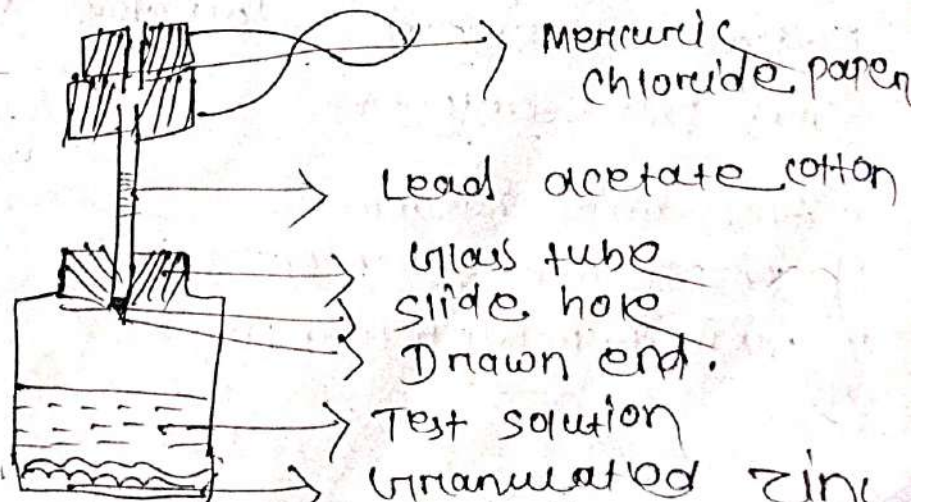 Mercuric
Chloride paper
Lead acetate cotton
Glass tube
Slide hole
Drawn end.
Test solution
Granulated zinc